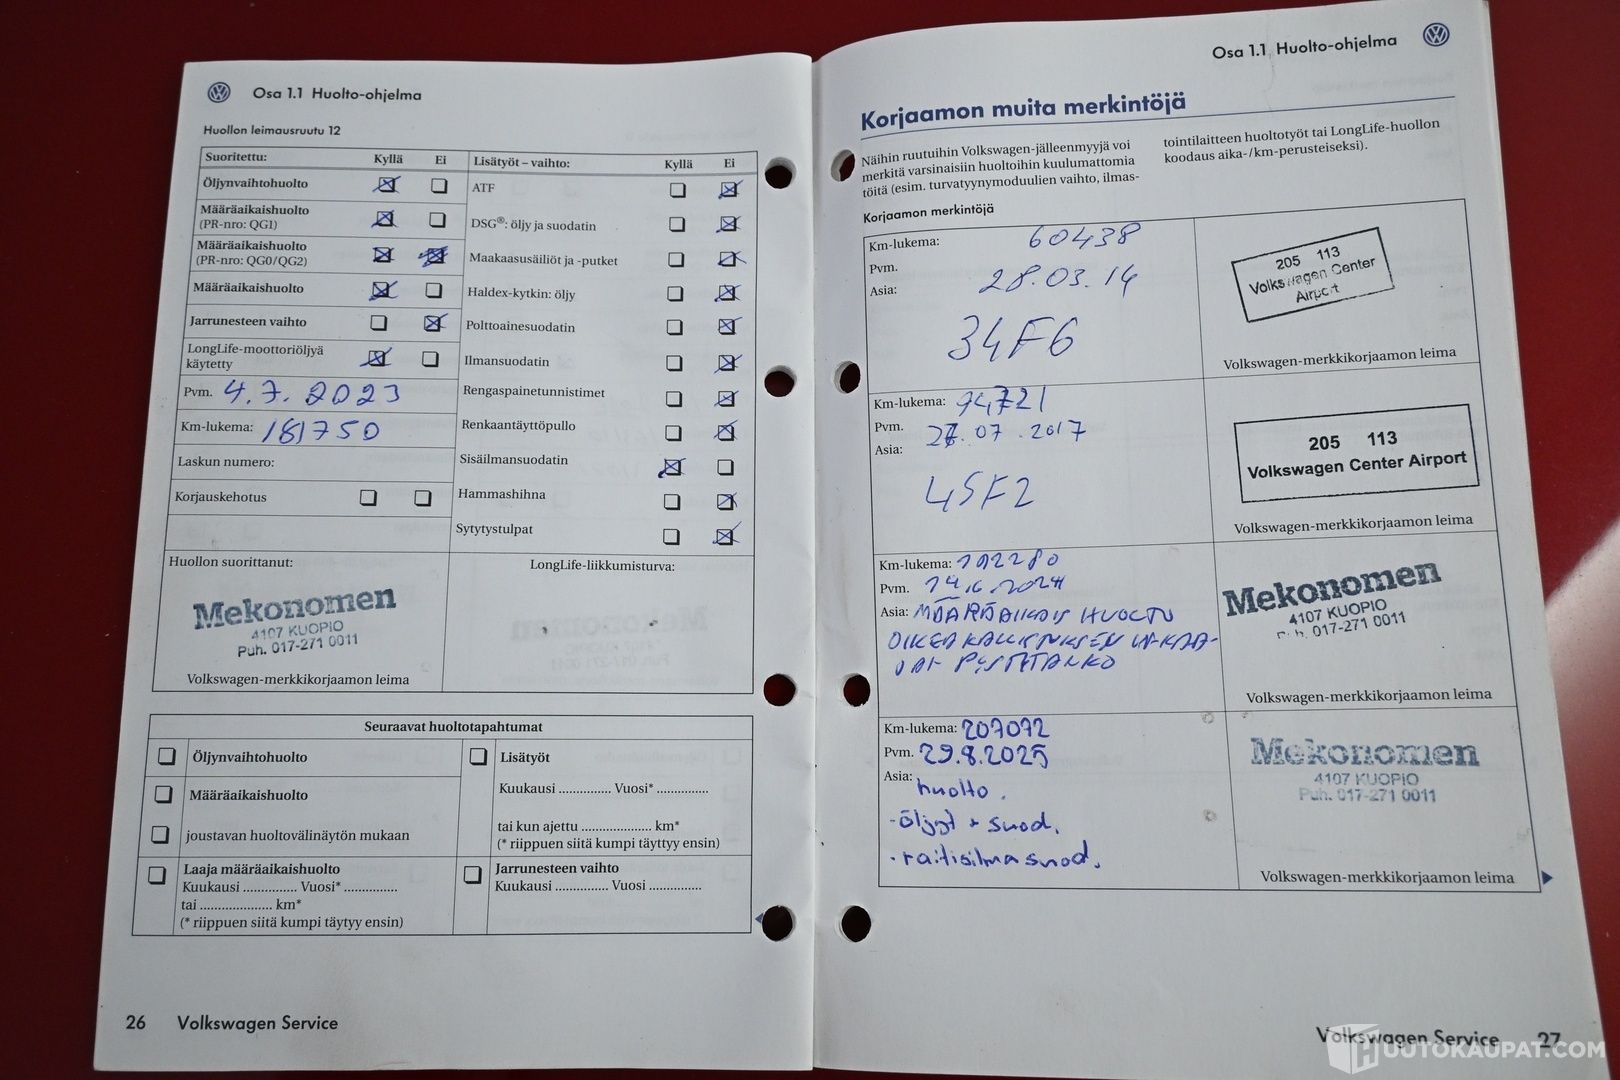 Osa 1.1 Huolto-ohjelma
Huollon leimausruutu 12
Suoritettu: Kyllä Ei
Öljynvaihtohuolto
Määräaikaishuolto
(PR-nro: QG1)
Määräaikaishuolto
(PR-nro: QG0/QG2)
Määräaikaishuolto
Jarrunesteen vaihto
LongLife-moottoriöljyä
käytetty
Pvm. 4.7.2023
Km-lukema: 181750
Laskun numero:
Korjauskehotus
Lisätyöt – vaihto: Kyllä Ei
ATF
DSG®: öljy ja suodatin
Maakaasusäiliöt ja -putket
Haldex-kytkin: öljy
Polttoainesuodatin
Ilmansuodatin
Rengaspainetunnistimet
Renkaantäyttöpullo
Sisäilmansuodatin
Hammashihna
Sytytystulpat
Huollon suorittanut:
Mekonomen
4107 KUOPIO
Puh. 017-271 0011
Volkswagen-merkkikorjaamon leima
LongLife-liikkumisturva:
Seuraavat huoltotapahtumat
Öljynvaihtohuolto
Määräaikaishuolto
joustavan huoltovälinäytön mukaan
Laaja määräaikaishuolto
Kuukausi ............... Vuosi* ...............
tai .................... km*
(* riippuen siitä kumpi täytyy ensin)
Lisätyöt
Kuukausi ............... Vuosi* ...............
tai kun ajettu .................... km*
(* riippuen siitä kumpi täyttyy ensin)
Jarrunesteen vaihto
Kuukausi ............... Vuosi ...............
26 Volkswagen Service
Osa 1.1 Huolto-ohjelma
Korjaamon muita merkintöjä
Näihin ruutuihin Volkswagen-jälleenmyyjä voi
merkitä varsinaisiin huoltoihin kuulumattomia
töitä (esim. turvatyynymoduulien vaihto, ilmas-
tointilaitteen huoltotyöt tai LongLife-huollon
koodaus aika-/km-perusteiseksi).
Korjaamon merkintöjä
Km-lukema: 60438
Pvm. 28.03.14
Asia:
34F6
205 113
Volkswagen Center
Airport
Volkswagen-merkkikorjaamon leima
Km-lukema: 94,721
Pvm. .07.2017
Asia:
45F2
205 113
Volkswagen Center Airport
Volkswagen-merkkikorjaamon leima
Km-lukema: 192280
Pvm. 14.6.2024
Asia: MÄÄRÄAIKAIS HUOLTO
OIKEA KALLISTUKSEN VAKAA-
PYSTYTANKO
Mekonomen
4107 KUOPIO
Puh. 017-271 0011
Volkswagen-merkkikorjaamon leima
Km-lukema: 207072
Pvm. 29.8.2025
Asia: huolto.
- öljyt + suod.
- raitisilmasuod.
Mekonomen
4107 KUOPIO
Puh. 017-271 0011
Volkswagen-merkkikorjaamon leima
Volkswagen Service 27
HUUTOKAUPAT.COM